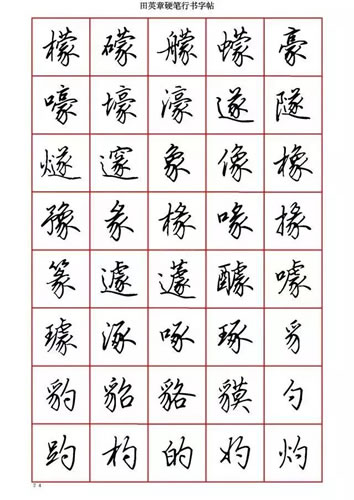 田英章硬笔行书字帖
檬 礞 艨 蠓 豪
嚎 壕 濠 遂 隧
燧 邃 象 像 橡
豫 彖 椽 喙 掾
篆 遽 蘧 醵 噱
璩 涿 啄 琢 豸
豹 貂 貉 貘 勺
趵 杓 的 妁 灼